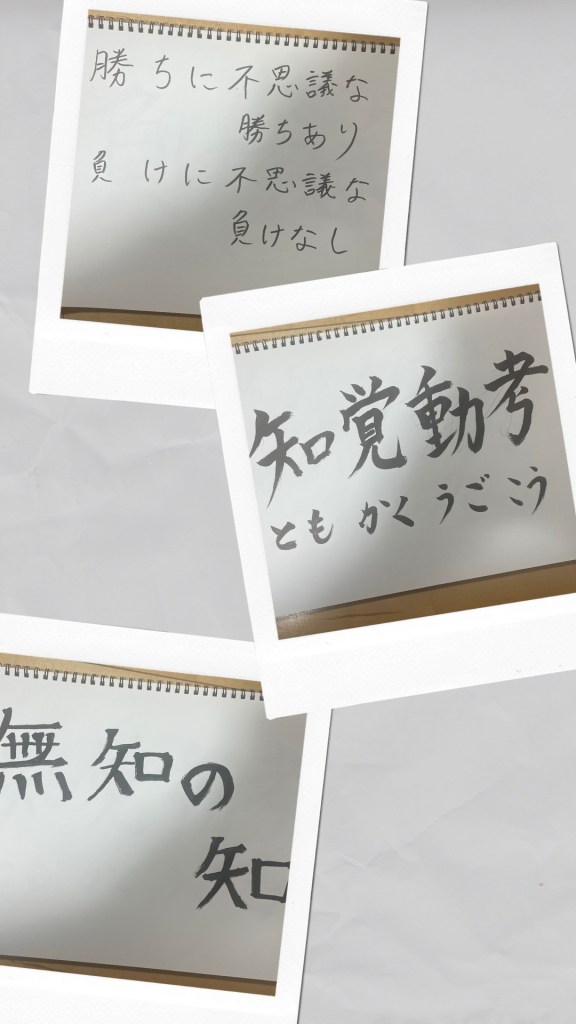 勝ちに不思議な
勝ちあり
負けに不思議な
負けなし
知覚動考
ともかくうごこう
無知の
知